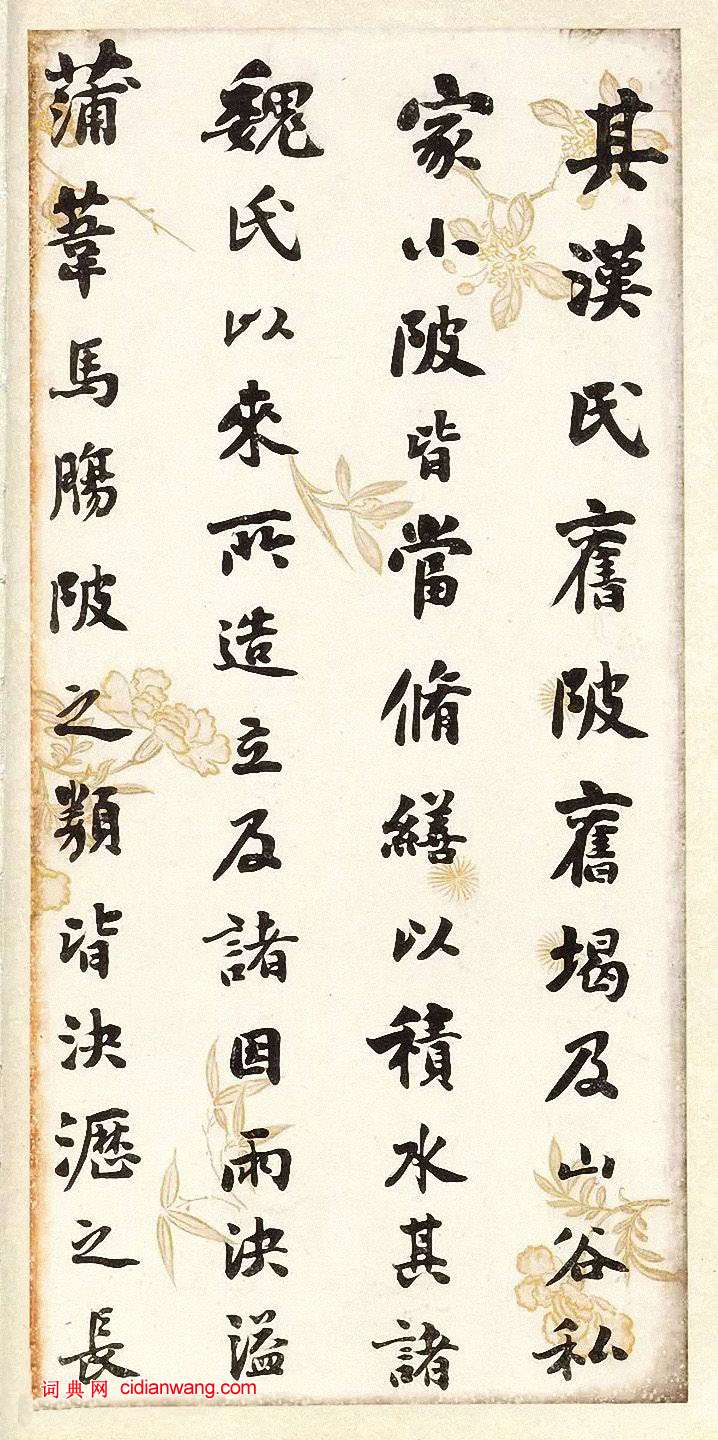 其漢氏舊陂舊堨及山谷私
家小陂皆當脩繕以積水其諸
魏氏以來所造立及諸因雨決溢
蒲葦馬膓陂之類皆決瀝之長
词典网 cidianwang.com